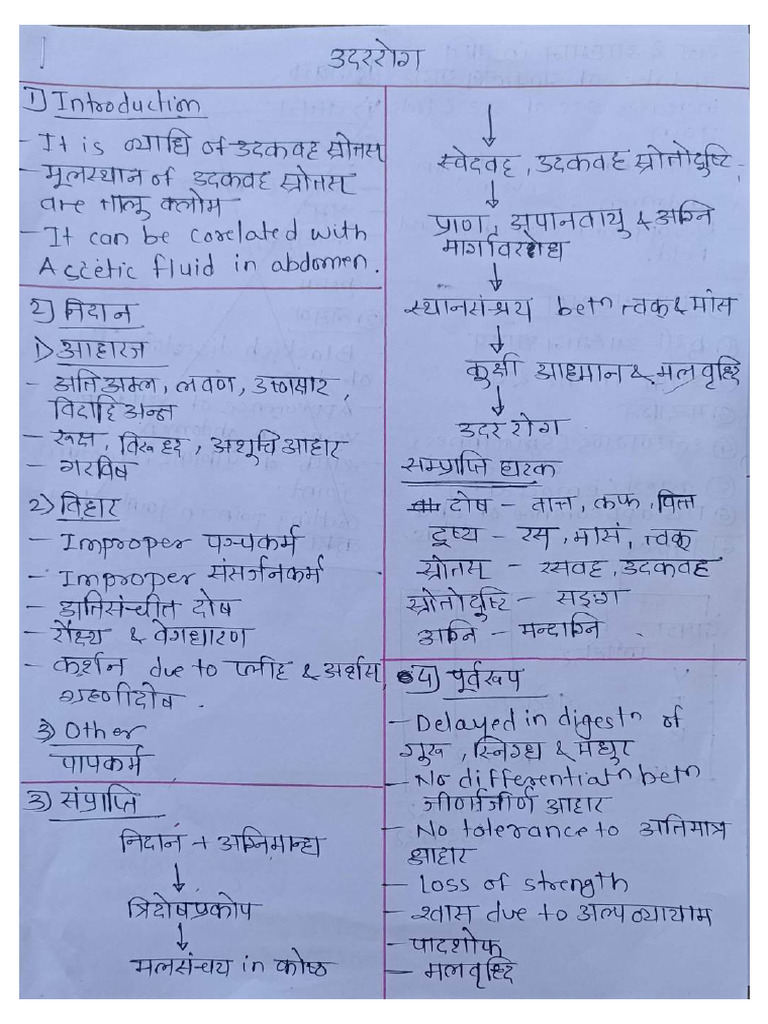 1
उदररोग
1) Introduction
- It is व्याधि of उदकवह स्रोतस
- मूलस्थान of उदकवह स्रोतस
are तालु क्लोम
- It can be corelated with
Ascetic fluid in abdomen.
2) निदान
1) आहारज
- अतिअम्ल, लवण, उष्णक्षार,
विदाहि अन्न
- रूक्ष, विरुद्ध, अशुचि आहार
- गरविष
2) विहार
- Improper पञ्चकर्म
- Improper संसर्जनकर्म
- अतिसंचीत दोष
- रौक्ष्य & वेगधारण
- कर्शन due to प्लीह & अर्शस,
ग्रहणीदोष.
3) Other
पापकर्म
3) संप्राप्ति
निदान + अग्निमान्द्य
↓
त्रिदोषप्रकोप
↓
मलसंचय in कोष्ठ
↓
स्वेदवह, उदकवह स्रोतोदुष्टि,
↓
प्राण, अपानवायु & अग्नि
मार्गावरोध
↓
स्थानसंश्रय betn त्वक & मांस
↓
कुक्षी आध्मान & मलवृद्धि
↓
उदर रोग
सम्प्राप्ति घटक
दोष - वात, कफ, पित्त
दूष्य - रस, मासं, त्वक्
स्रोतस - रसवह, उदकवह
स्रोतोदुष्टि - सङ्ग
अग्नि - मन्दाग्नि.
4) पूर्वरूप
- Delayed in digestn of
गुरू, स्निग्ध & मधुर
- No differentiatn betn
जीर्णाजीर्ण आहार
- No tolerance to अतिमात्र
आहार
- Loss of strength
- श्वास due to अल्पव्यायाम
- पादशोफ
- मलवृद्धि